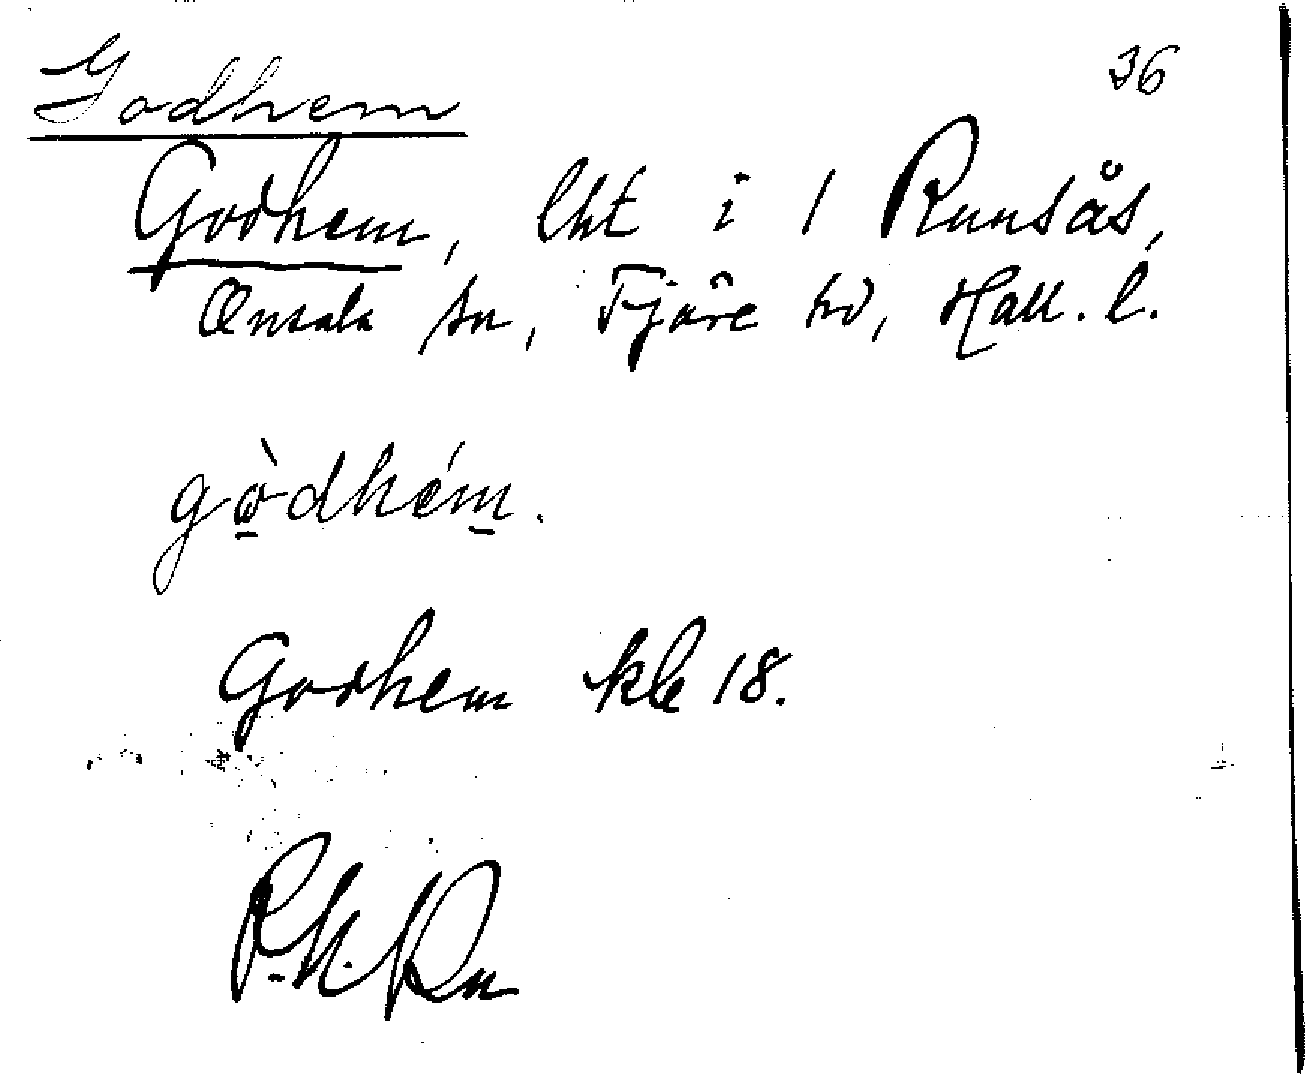 Godhem 36
Godhem, lht i 1 Runsås,
Onsala sn, Fjäre hd, Hall. l.
gò̲dhém̲.
Godhem kbr 18.